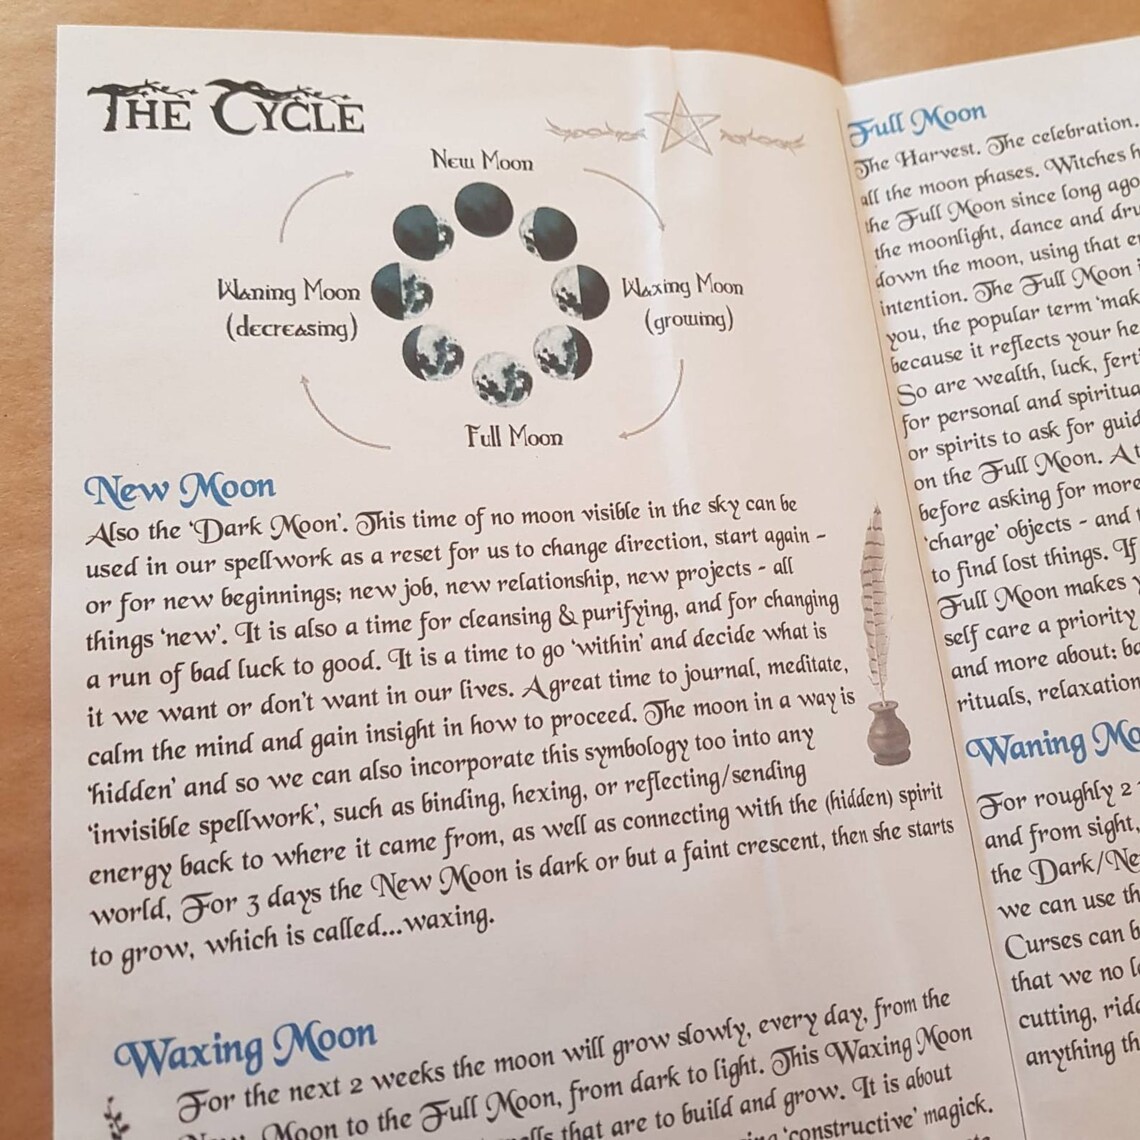 THE CYCLE
New Moon
Waning Moon
(decreasing)
Waxing Moon
(growing)
Full Moon
New Moon
Also the 'Dark Moon'. This time of no moon visible in the sky can be
used in our spellwork as a reset for us to change direction, start again -
or for new beginnings; new job, new relationship, new projects - all
things 'new'. It is also a time for cleansing & purifying, and for changing
a run of bad luck to good. It is a time to go 'within' and decide what is
it we want or don't want in our lives. A great time to journal, meditate,
calm the mind and gain insight in how to proceed. The moon in a way is
'hidden' and so we can also incorporate this symbology too into any
'invisible spellwork', such as binding, hexing, or reflecting/sending
energy back to where it came from, as well as connecting with the (hidden) spirit
world, For 3 days the New Moon is dark or but a faint crescent, then she starts
to grow, which is called...waxing.
Waxing Moon
For the next 2 weeks the moon will grow slowly, every day, from the
New Moon to the Full Moon, from dark to light. This Waxing Moon
that are to build and grow. It is about
'constructive' magick.
Full Moon
The Harvest. The celebration.
all the moon phases. Witches
the Full Moon since long ago
the moonlight, dance and
down the moon, using that
intention. The Full Moon
you, the popular term
because it reflects your
So are wealth, luck,
for personal and
or spirits to ask for
on the Full Moon. A
before asking for more
'charge' objects - and
to find lost things. If
Full Moon makes
self care a priority
and more about:
rituals, relaxation
Waning
For roughly 2
and from sight,
the
we can use
Curses can
that we no
cutting,
anything